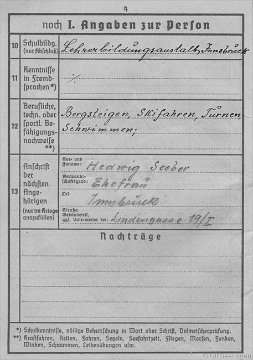 4
noch I. Angaben zur Person
10 Schulbildg. (nur Abschluß) Lehrerbildungsanstalt, Innsbruck
11 Kenntnisse in Fremdsprachen *) ./.
12 Berufliche, techn. oder sportl. Befähigungsnachweise **) Bergsteigen, Skifahren, Turnen
Schwimmen;
13 Anschrift der nächsten Angehörigen (nur im Kriege auszufüllen)
Vor- und Zuname: Hedwig Seeber
Verwandtschaftsgrad: Ehefrau
Ort Innsbruck
Straße Lindengasse 19/I
Nachträge
*) Schulkenntnisse, völlige Beherrschung in Wort oder Schrift, Dolmetscherprüfung.
**) Kraftfahren, Reiten, Fahren, Segeln, Seeschiffahrt, Fliegen, Morsen, Funken,
Winken, Schwimmen, Leibesübungen usw.